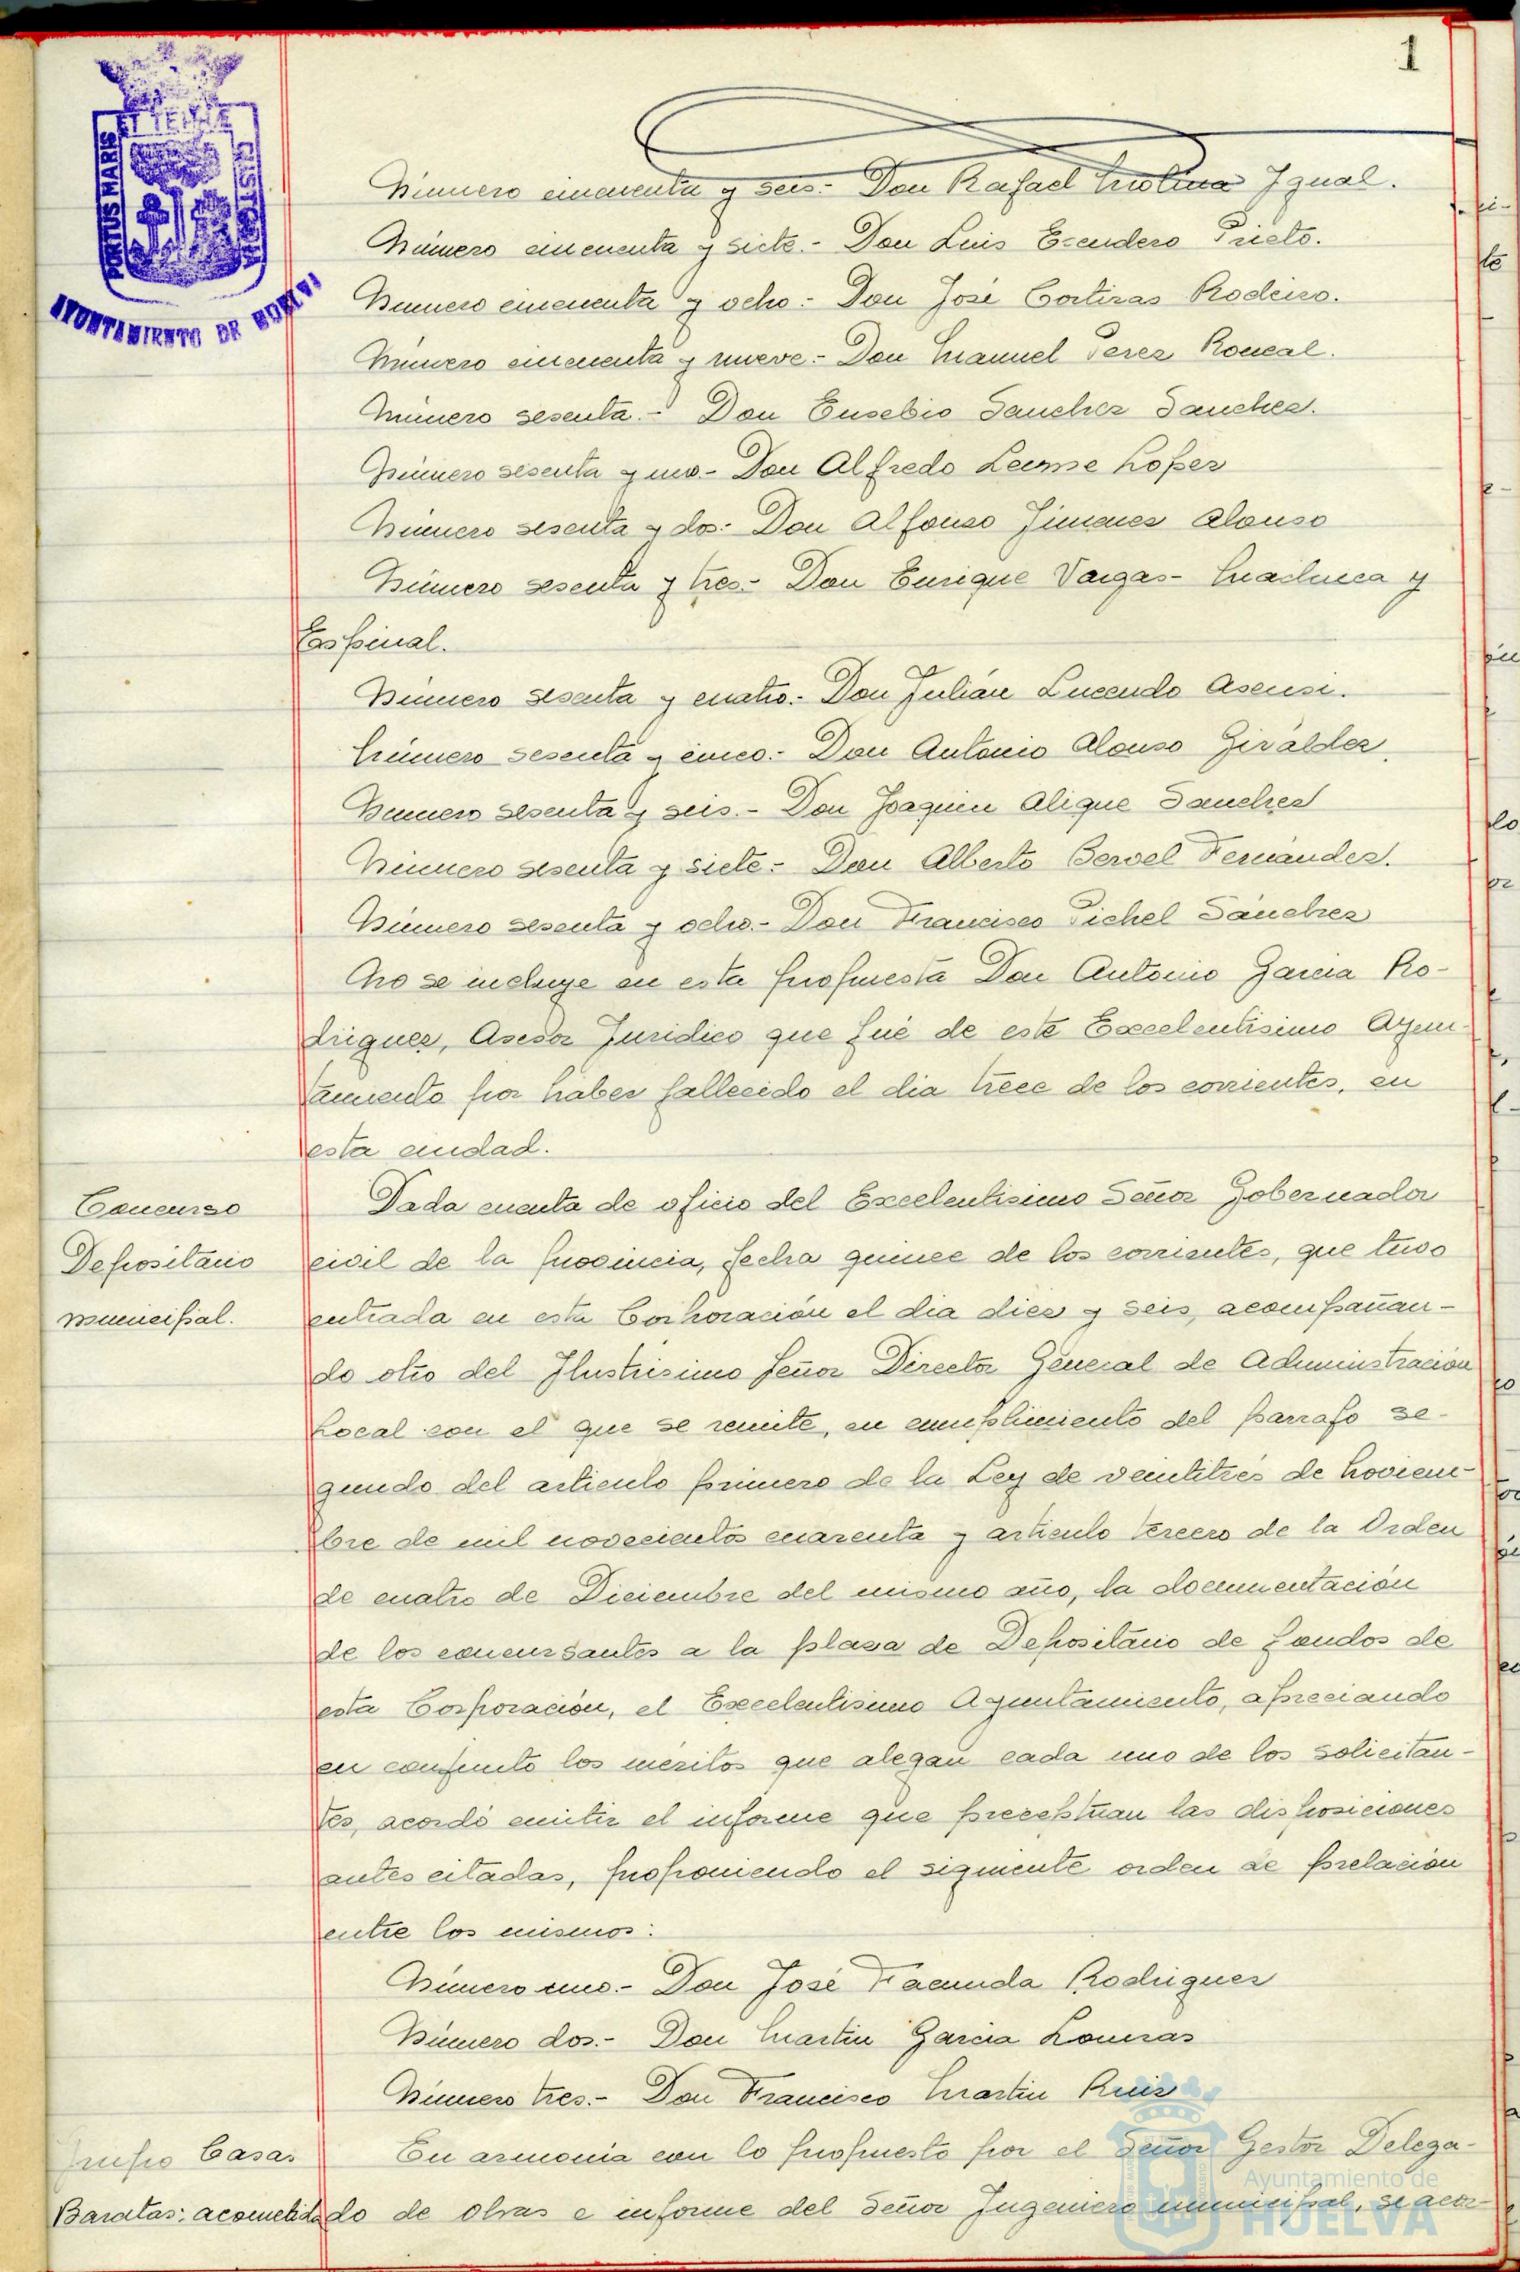 1
PORTUS MARIS
ET TERRÆ
CUSTODIA
AYUNTAMIENTO DE HUELVA
Número cincuenta y seis.- Don Rafael Molina Igual.
Número cincuenta y siete.- Don Luis Escudero Prieto.
Número cincuenta y ocho.- Don José Cortizas Rodeiro.
Número cincuenta y nueve.- Don Manuel Perez Roncal.
Número sesenta.- Don Eusebio Sanchez Sanchez.
Número sesenta y uno.- Don Alfredo Lopez
Número sesenta y dos.- Don Alfonso Jimenez Alonso
Número sesenta y tres.- Don Enrique Vargas-Machuca y
Espinal.
Número sesenta y cuatro.- Don Julián Lucendo Asensi.
Número sesenta y cinco.- Don Antonio Alonso Giráldez.
Numero sesenta y seis.- Don Joaquin Alique Sanchez
Número sesenta y siete.- Don Alberto Bervel Fernández.
Número sesenta y ocho.- Don Francisco Pichel Sánchez
No se incluye en esta propuesta Don Antonio Garcia Ro-
driguez, Asesor Juridico que fué de este Excelentisimo Ayun-
tamiento por haber fallecido el dia trece de los corrientes, en
esta ciudad.
Concurso
Depositario
municipal.
Dada cuenta de oficio del Excelentisimo Señor Gobernador
civil de la provincia, fecha quince de los corrientes, que tuvo
entrada en esta Corporación el dia diez y seis, acompañan-
do otro del Ilustrisimo Señor Director General de Administración
Local con el que se remite, en cumplimiento del parrafo se-
gundo del articulo primero de la Ley de veintitrés de Noviem-
bre de mil novecientos cuarenta y articulo tercero de la Orden
de cuatro de Diciembre del mismo año, la documentación
de los concursantes a la plaza de Depositario de fondos de
esta Corporación, el Excelentisimo Ayuntamiento, apreciando
en conjunto los méritos que alegan cada uno de los solicitan-
tes, acordó emitir el informe que preceptuan las disposiciones
antes citadas, proponiendo el siguiente orden de prelación
entre los mismos:
Número uno.- Don José Facunda Rodriguez
Número dos.- Don Martin Garcia Lomas
Número tres.- Don Francisco Martin Ruiz
Grupo Casas
Baratas: acometida
En armonia con lo propuesto por el Señor Gestor Delega-
do de obras e informe del Señor Ingeniero municipal, se acor-
Ayuntamiento de
HUELVA